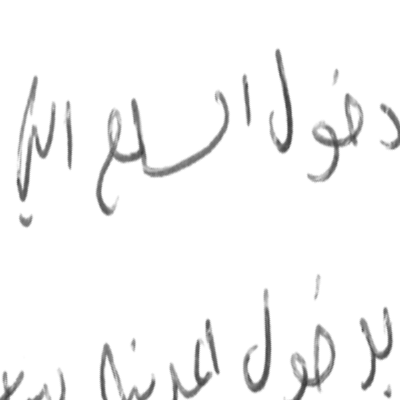 دخول السلع الى
بدخول المدينه